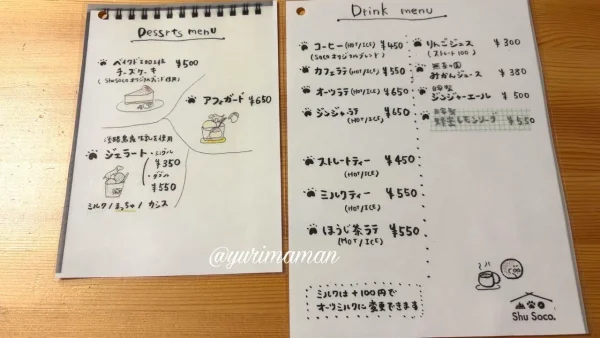 Desserts menu
ベイクドショコラ
チーズケーキ ¥500
(ShuSocoオリジナル豆使用)
アフォガード ¥650
淡路島産生乳を使用
ジェラート・シングル
¥350
・ダブル
¥550
ミルク/まっちゃ/カシス
Drink menu
コーヒー(HOT/ICE) ¥450
(Socoオリジナルブレンド)
カフェラテ(HOT/ICE) ¥550
オーツラテ(HOT/ICE) ¥650
ジンジャーラテ ¥650
(HOT/ICE)
ストレートティー ¥450
(HOT/ICE)
ミルクティー ¥550
(HOT/ICE)
ほうじ茶ラテ ¥550
(HOT/ICE)
ミルクは+100円で
オーツミルクに変更できます
りんごジュース ¥300
(ストレート100)
みかんジュース ¥380
自家製
ジンジャーエール ¥500
自家製
レモンソーダ ¥550
Shu Soco.
@yurimaman